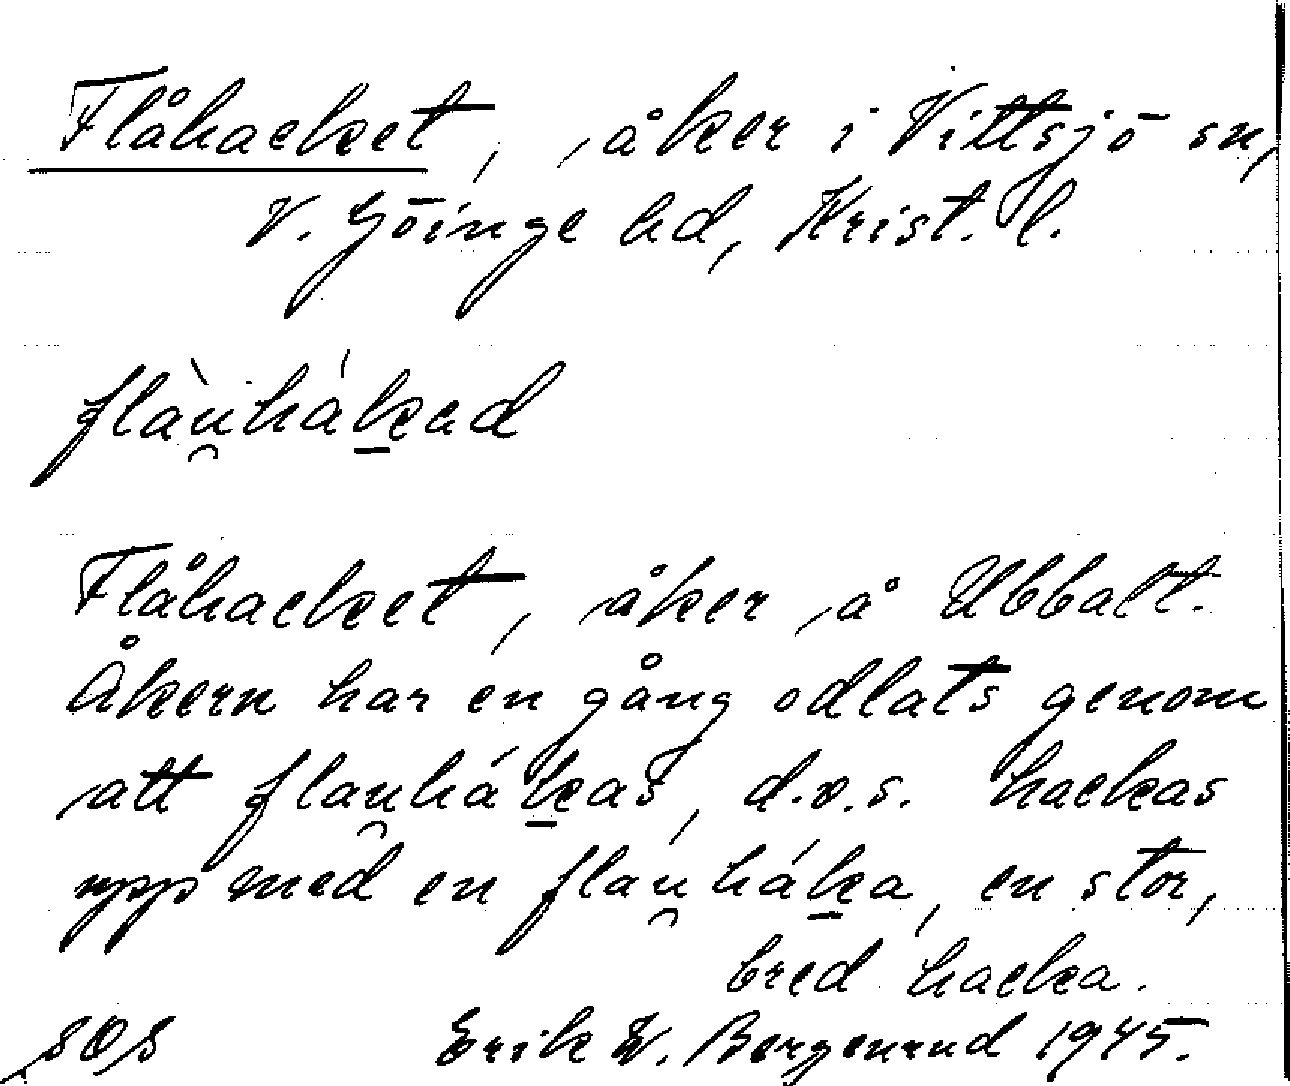 Flåhacket, åker i Vittsjö sn,
V. Göinge hd, Krist. l.
flàu̯háḵad
Flåhacket, åker å Ubbalt.
Åkern har en gång odlats genom
att flau̯háḵas, d.v.s. hackas
upp med en flau̯háḵa, en stor,
bred hacka.
SOS Erik W. Bergenrud 1945.